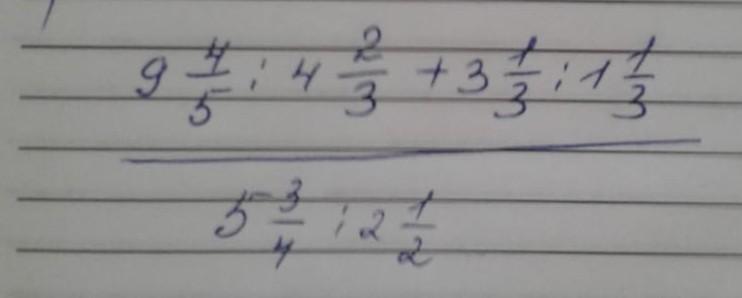 9 4/5 : 4 2/3 + 3 1/3 : 1 1/3
5 3/4 : 2 1/2